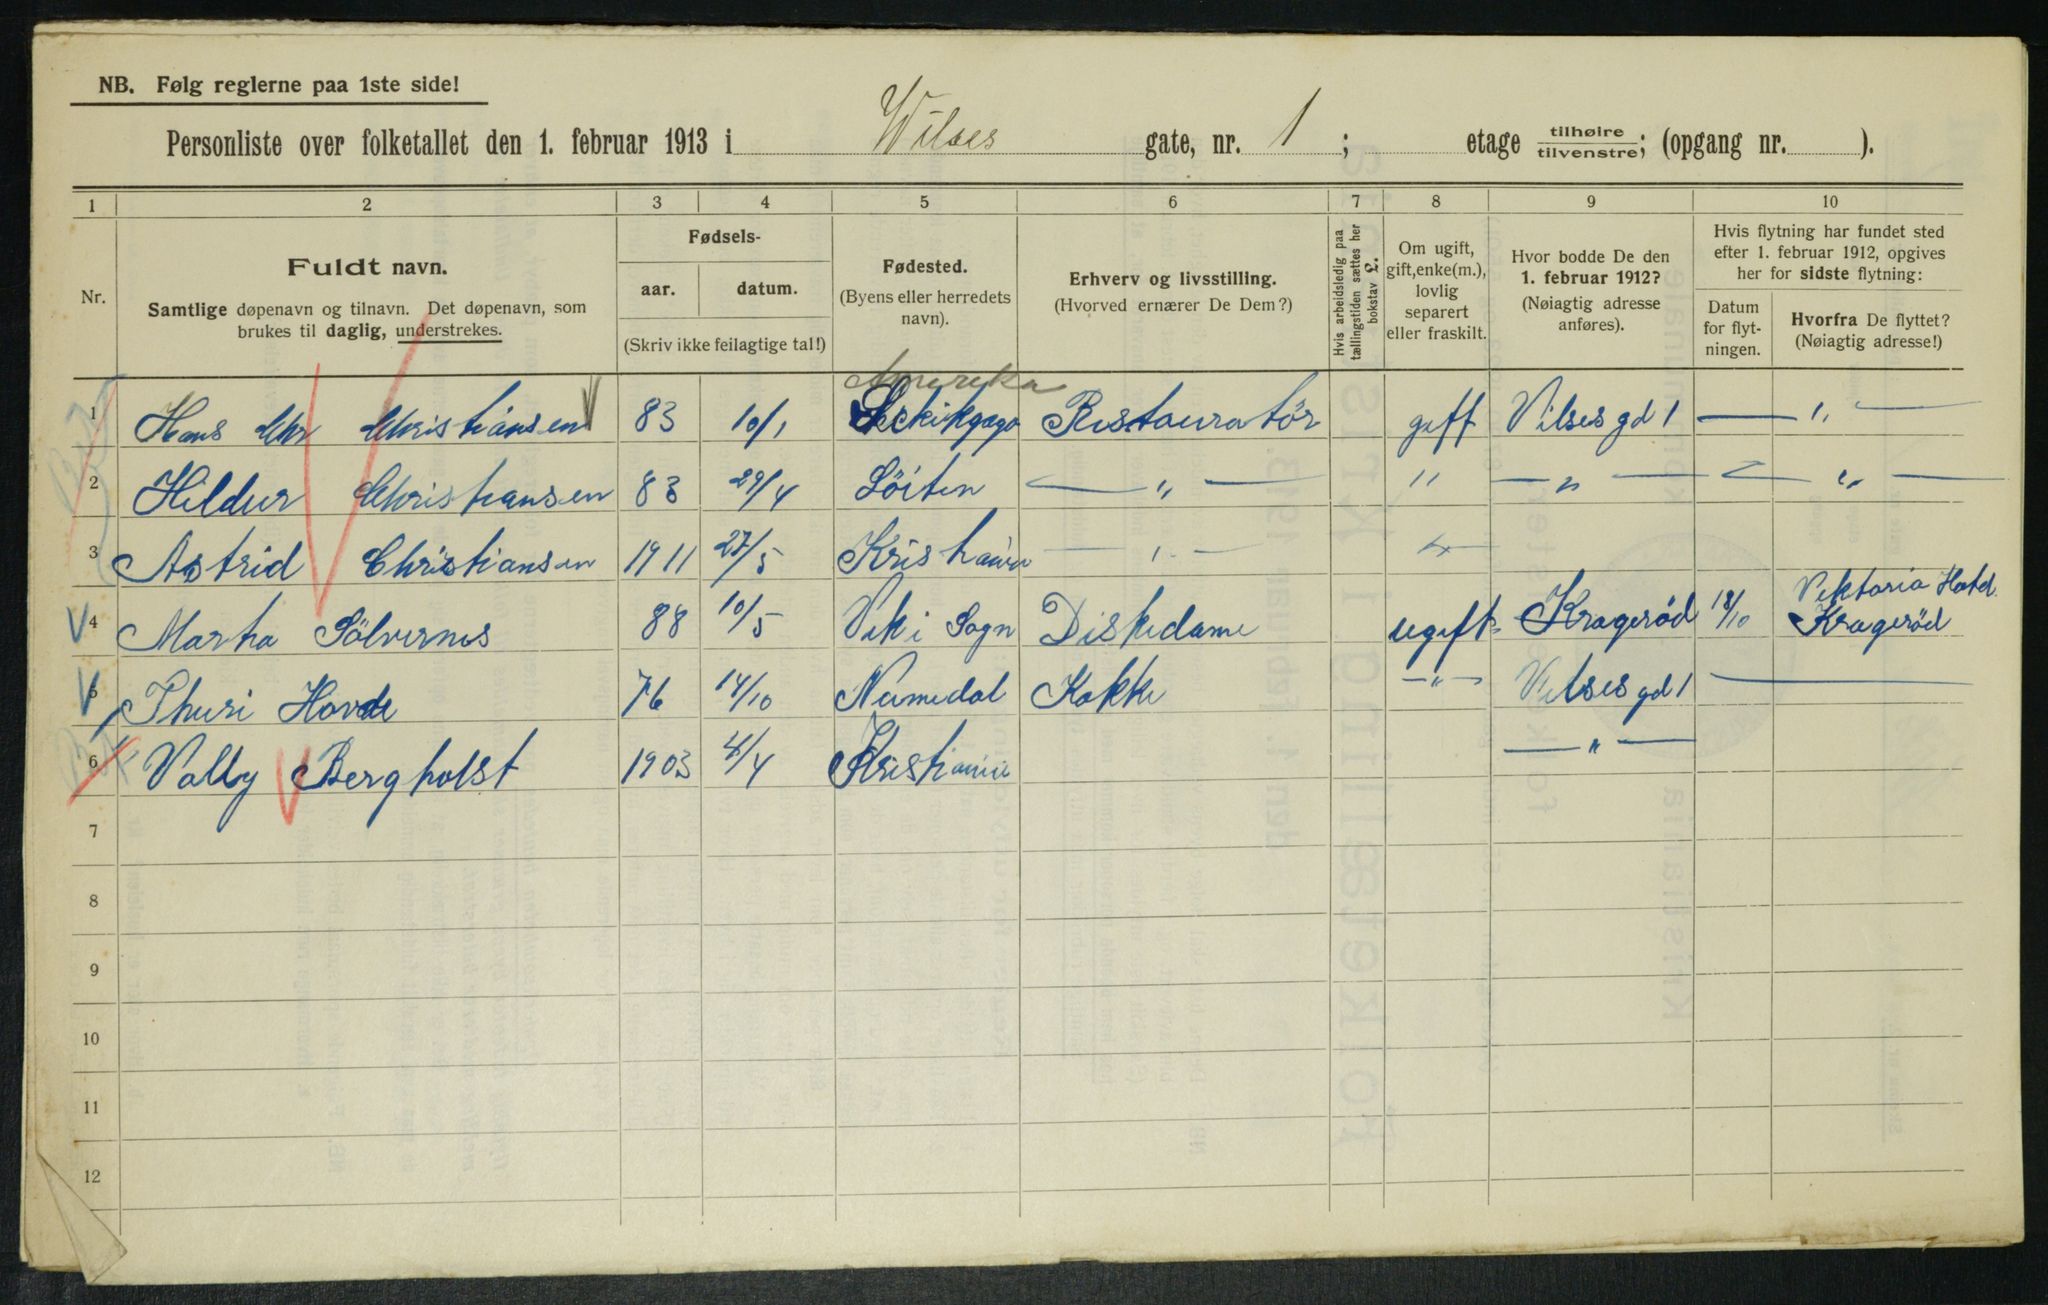 NB. Følg reglerne paa 1ste side!
Personliste over folketallet den 1. februar 1913 i Wilses gate, nr. 1; etage tilhøire/tilvenstre; (opgang nr. ).
1 2 3 4 5 6 7 8 9 10
Nr.
Fuldt navn.
Samtlige døpenavn og tilnavn. Det døpenavn, som
brukes til daglig, understrekes.
Fødsels-
aar. datum.
(Skriv ikke feilagtige tal!)
Fødested.
(Byens eller herredets
navn).
Erhverv og livsstilling.
(Hvorved ernærer De Dem?)
Hvis arbeidsledig paa
tællingstiden sættes her
bokstav L.
Om ugift,
gift, enke(m.),
lovlig
separert
eller fraskilt.
Hvor bodde De den
1. februar 1912?
(Nøiagtig adresse
anføres).
Hvis flytning har fundet sted
efter 1. februar 1912, opgives
her for sidste flytning:
Datum
for flyt-
ningen.
Hvorfra De flyttet?
(Nøiagtig adresse!)
Amerika
1 Hans Chr Christiansen 83 10/1 Restauratör gift Vilsesgd 1 — " —
2 Hildur Christiansen 83 29/4 Löiten — " — " — " — — " —
3 Astrid Christiansen 1911 27/5 — " —
Viktoria Hotel
4 Martha Sölvernes 88 10/5 Vik i Sogn Diskedame ugift Kragerød 18/10 Kragerød
5 Thuri Hovde 76 14/10 Numedal Kokke — " — Vilsesgd 1 —
6 Valby Bergholst 1903 4/4 Kristiania — " —
7
8
9
10
11
12